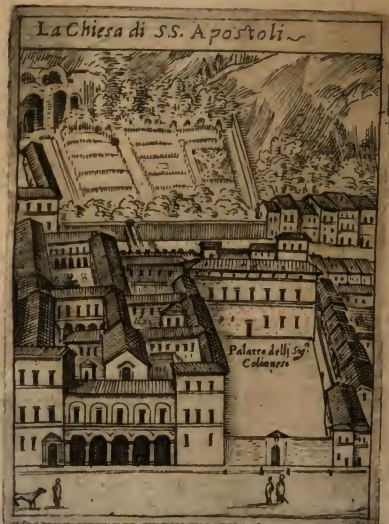 La Chiesa di SS. Apostoli
Palazzo delli Sig.ri
Colonnesi